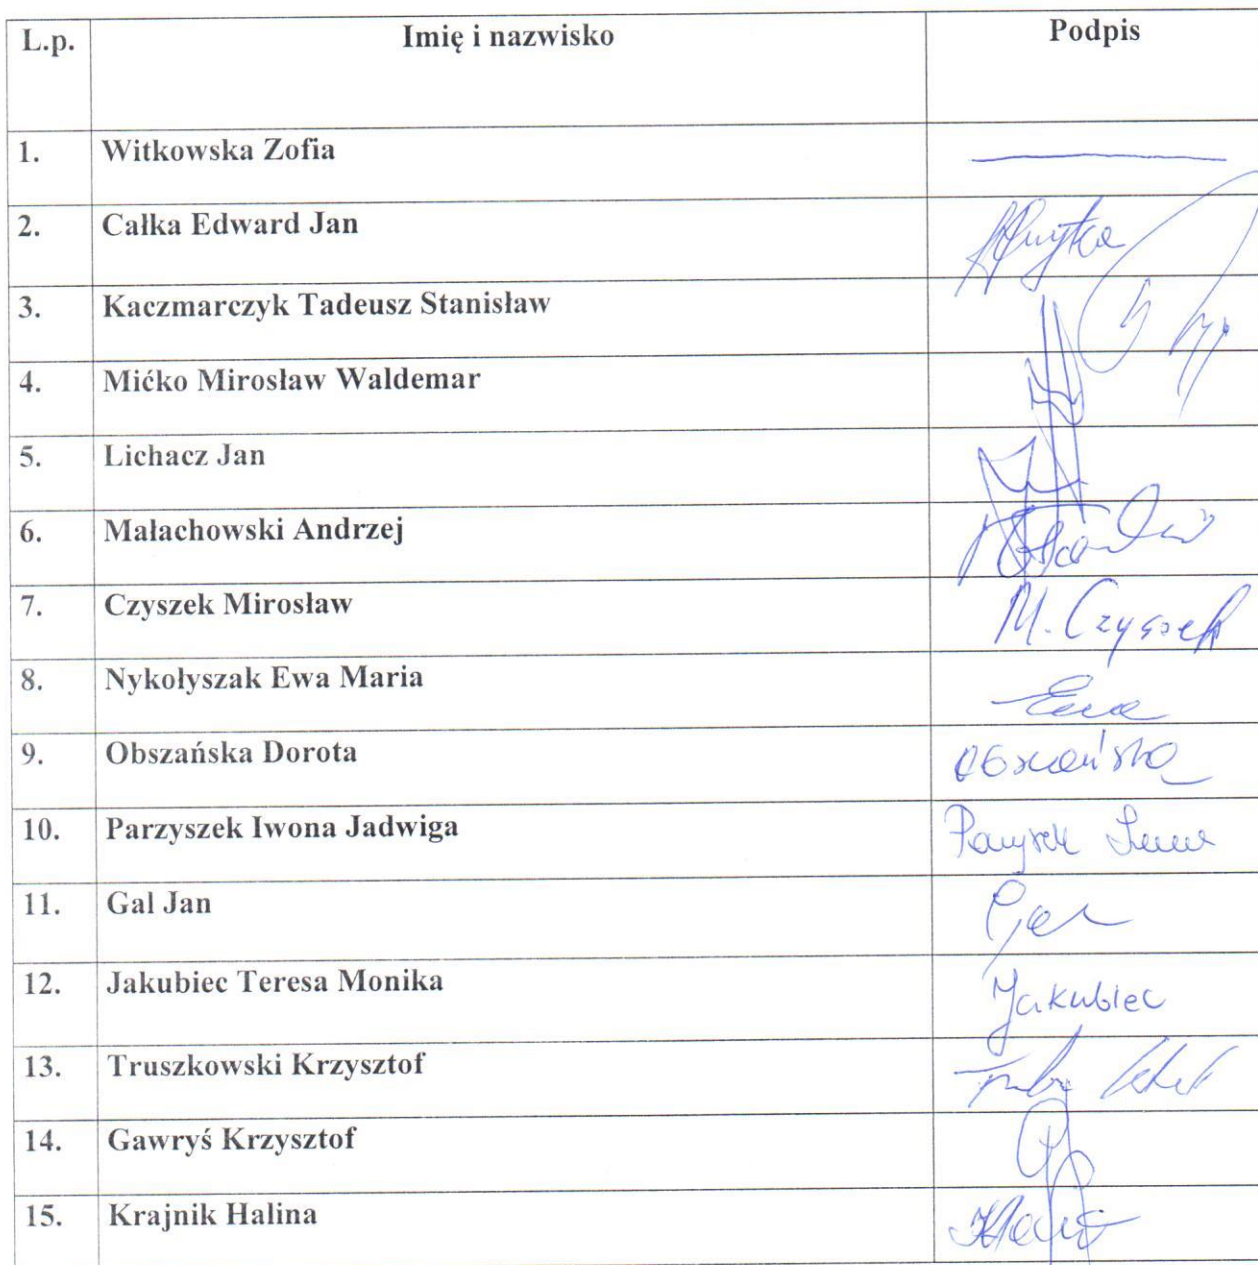 L.p. Imię i nazwisko Podpis
1. Witkowska Zofia
2. Całka Edward Jan
3. Kaczmarczyk Tadeusz Stanisław
4. Mićko Mirosław Waldemar
5. Lichacz Jan
6. Małachowski Andrzej
7. Czyszek Mirosław M. Czyszek
8. Nykołyszak Ewa Maria Ewa
9. Obszańska Dorota Obszańska
10. Parzyszek Iwona Jadwiga
11. Gal Jan Gal
12. Jakubiec Teresa Monika Jakubiec
13. Truszkowski Krzysztof
14. Gawryś Krzysztof
15. Krajnik Halina